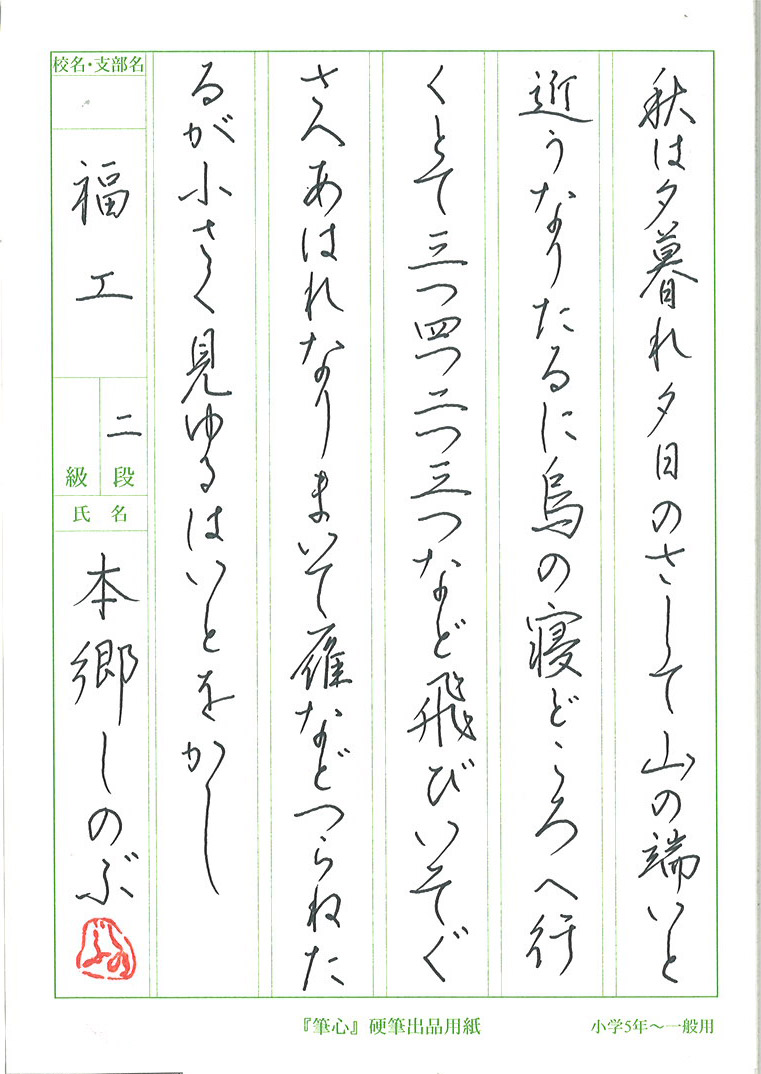 秋は夕暮れ夕日のさして山の端いと
近うなりたるに烏の寝どころへ行
くとて三つ四つ二つ三つなど飛びいそぐ
さへあはれなりまいて雁などつらねた
るが小さく見ゆるはいとをかし
校名・支部名
福工
二
級 段
氏名
本郷しのぶ
しのぶ
『筆心』硬筆出品用紙
小学5年〜一般用